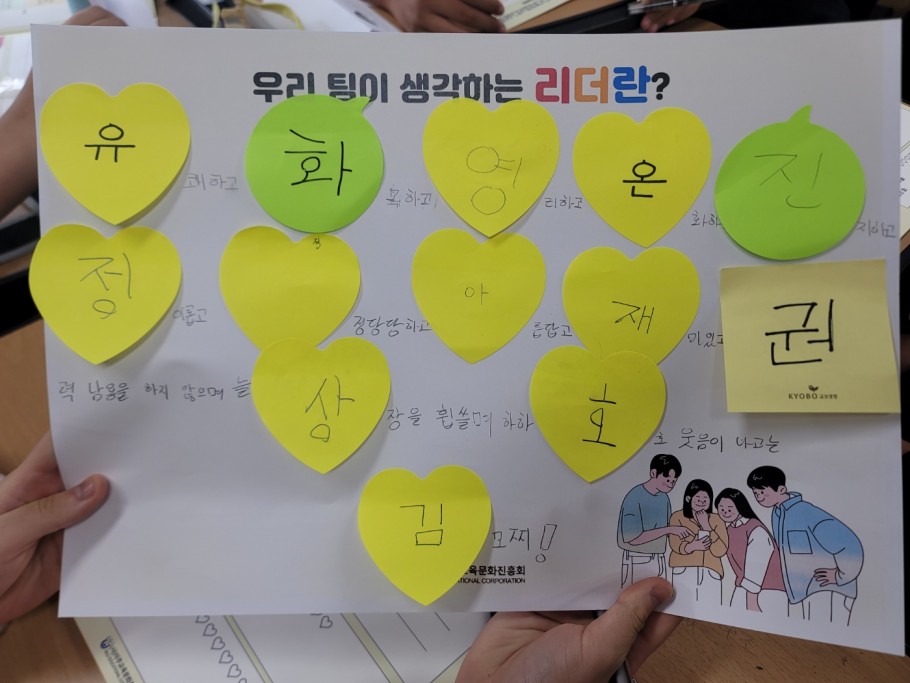 우리 팀이 생각하는 리더란?
유쾌하고 화목하고 영리하고 온화하고 진지하고
정의롭고 정정당당하고 아름답고 재미있고 권
KYOBO 교보생명
력 남용을 하지 않으며 늘 상장을 휩쓸며 하하호
호 웃음이 나고는
김모찌!
육문화진흥회
TIONAL CORPORATION